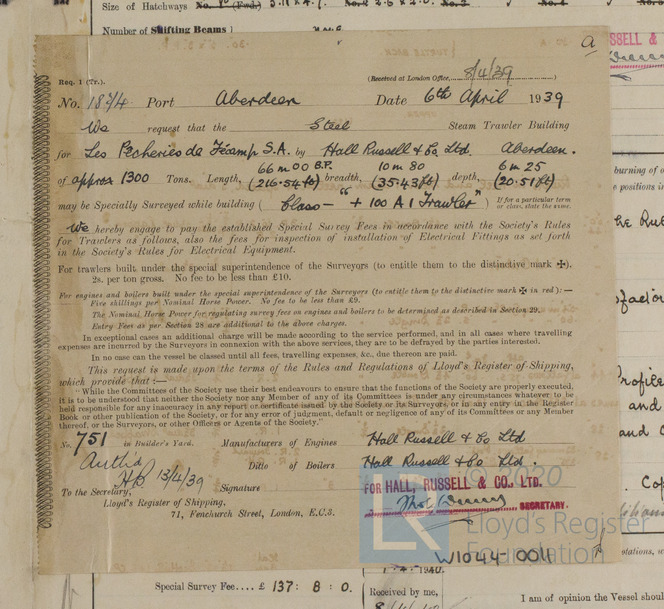 Size of Hatchways No. 1
Number of Shifting Beams None
a
Req. 1 (Tr.). (Received at London Office, 8/4/39)
No. 1874 Port Aberdeen Date 6th April 1939
We request that the Steel Steam Trawler Building
for Les Pêcheries de Fécamp S.A. by Hall Russell & Co. Ltd. Aberdeen.
66 m 00 B.P. 10 m 80 6 m 25
of approx 1300 Tons. Length, (216.54 ft) breadth, (35.43 ft) depth, (20.51 ft)
may be Specially Surveyed while building ( Class — "+ 100 A 1 Trawler" ) If for a particular term or class, state the same.
We hereby engage to pay the established Special Survey Fees in accordance with the Society's Rules
for Trawlers as follows, also the fees for inspection of installation of Electrical Fittings as set forth
in the Society's Rules for Electrical Equipment.
For trawlers built under the special superintendence of the Surveyors (to entitle them to the distinctive mark ✠),
2s. per ton gross. No fee to be less than £10.
For engines and boilers built under the special superintendence of the Surveyors (to entitle them to the distinctive mark ✠ in red):—
Five shillings per Nominal Horse Power. No fee to be less than £9.
The Nominal Horse Power for regulating survey fees on engines and boilers to be determined as described in Section 29.
Entry Fees as per Section 28 are additional to the above charges.
In exceptional cases an additional charge will be made according to the service performed, and in all cases where travelling
expenses are incurred by the Surveyors in connection with the above services, they are to be defrayed by the parties interested.
In no case can the vessel be classed until all fees, travelling expenses, &c., due thereon are paid.
This request is made upon the terms of the Rules and Regulations of Lloyd's Register of Shipping,
which provide that :—
"While the Committees of the Society use their best endeavours to ensure that the functions of the Society are properly executed,
it is to be understood that neither the Society nor any Member of any of its Committees is under any circumstances whatever to be
held responsible for any inaccuracy in any report or certificate issued by the Society or its Surveyors, or in any entry in the Register
Book or other publication of the Society, or for any error of judgment, default or negligence of any of its Committees or any Member
thereof, or the Surveyors, or other Officers or Agents of the Society."
No. 751 in Builder's Yard. Manufacturers of Engines Hall Russell & Co Ltd
Ditto of Boilers Hall Russell & Co Ltd
13/4/39 Signature FOR HALL, RUSSELL & CO. LTD.
SECRETARY.
To the Secretary,
Lloyd's Register of Shipping,
71, Fenchurch Street, London, E.C.3.
LR
© 2020
Lloyd's Register
Foundation
W1044-0011
Special Survey Fee.... £ 137 : 8 : 0.
Received by me,
I am of opinion the Vessel shou
SSELL &
burning of o
e positions i
he Rub
factor
Profile
and
and C
Cop